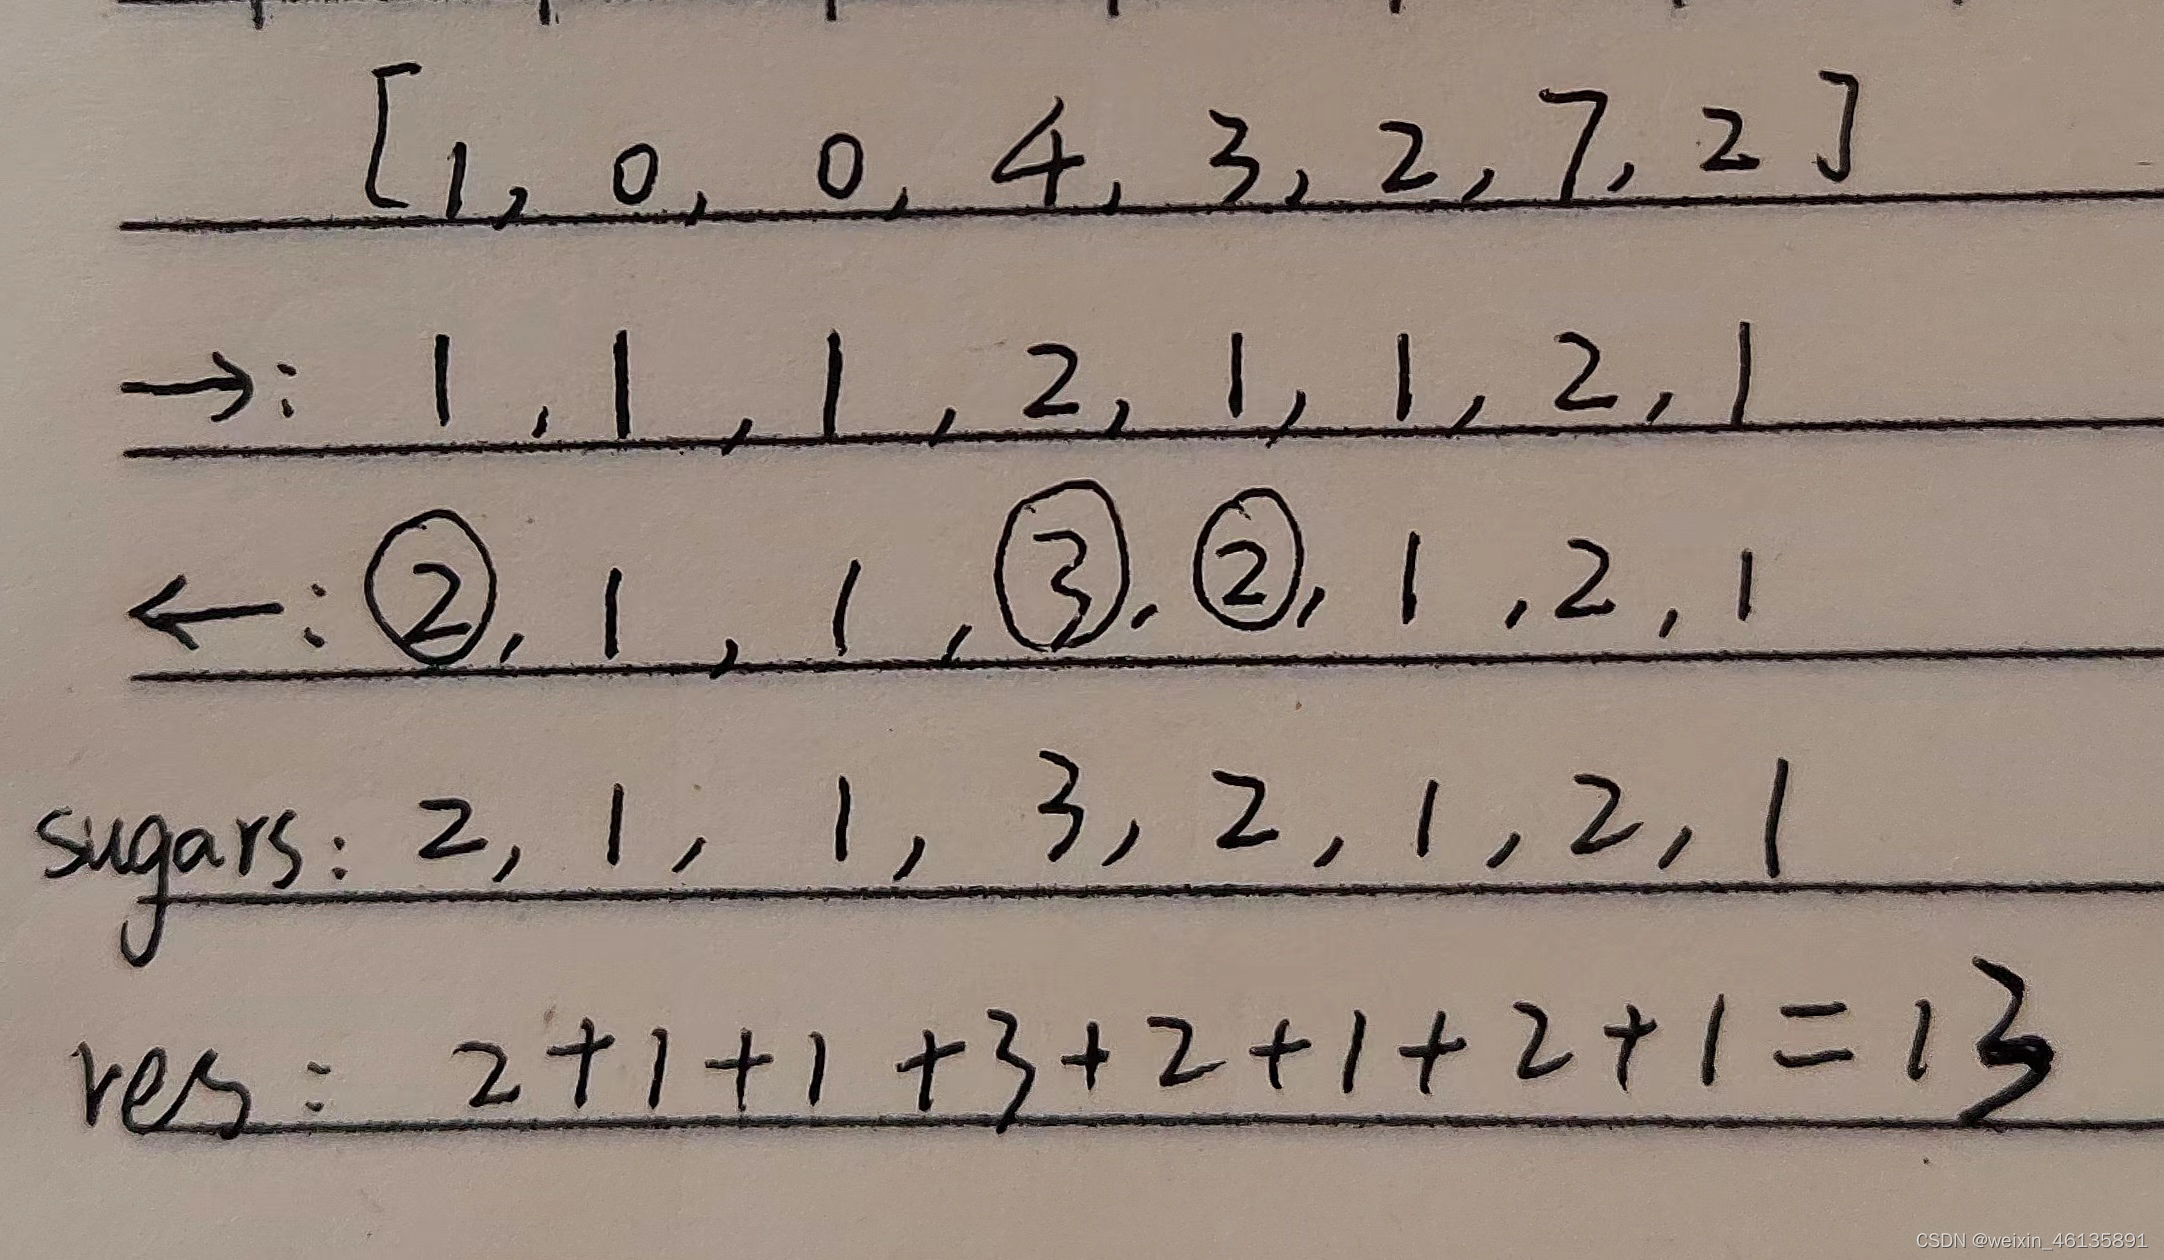 [1, 0, 0, 4, 3, 2, 7, 2]
→: 1, 1, 1, 2, 1, 1, 2, 1
←: ②, 1, 1, ③, ②, 1, 2, 1
sugars: 2, 1, 1, 3, 2, 1, 2, 1
res: 2+1+1+3+2+1+2+1=13
CSDN @weixin_46135891